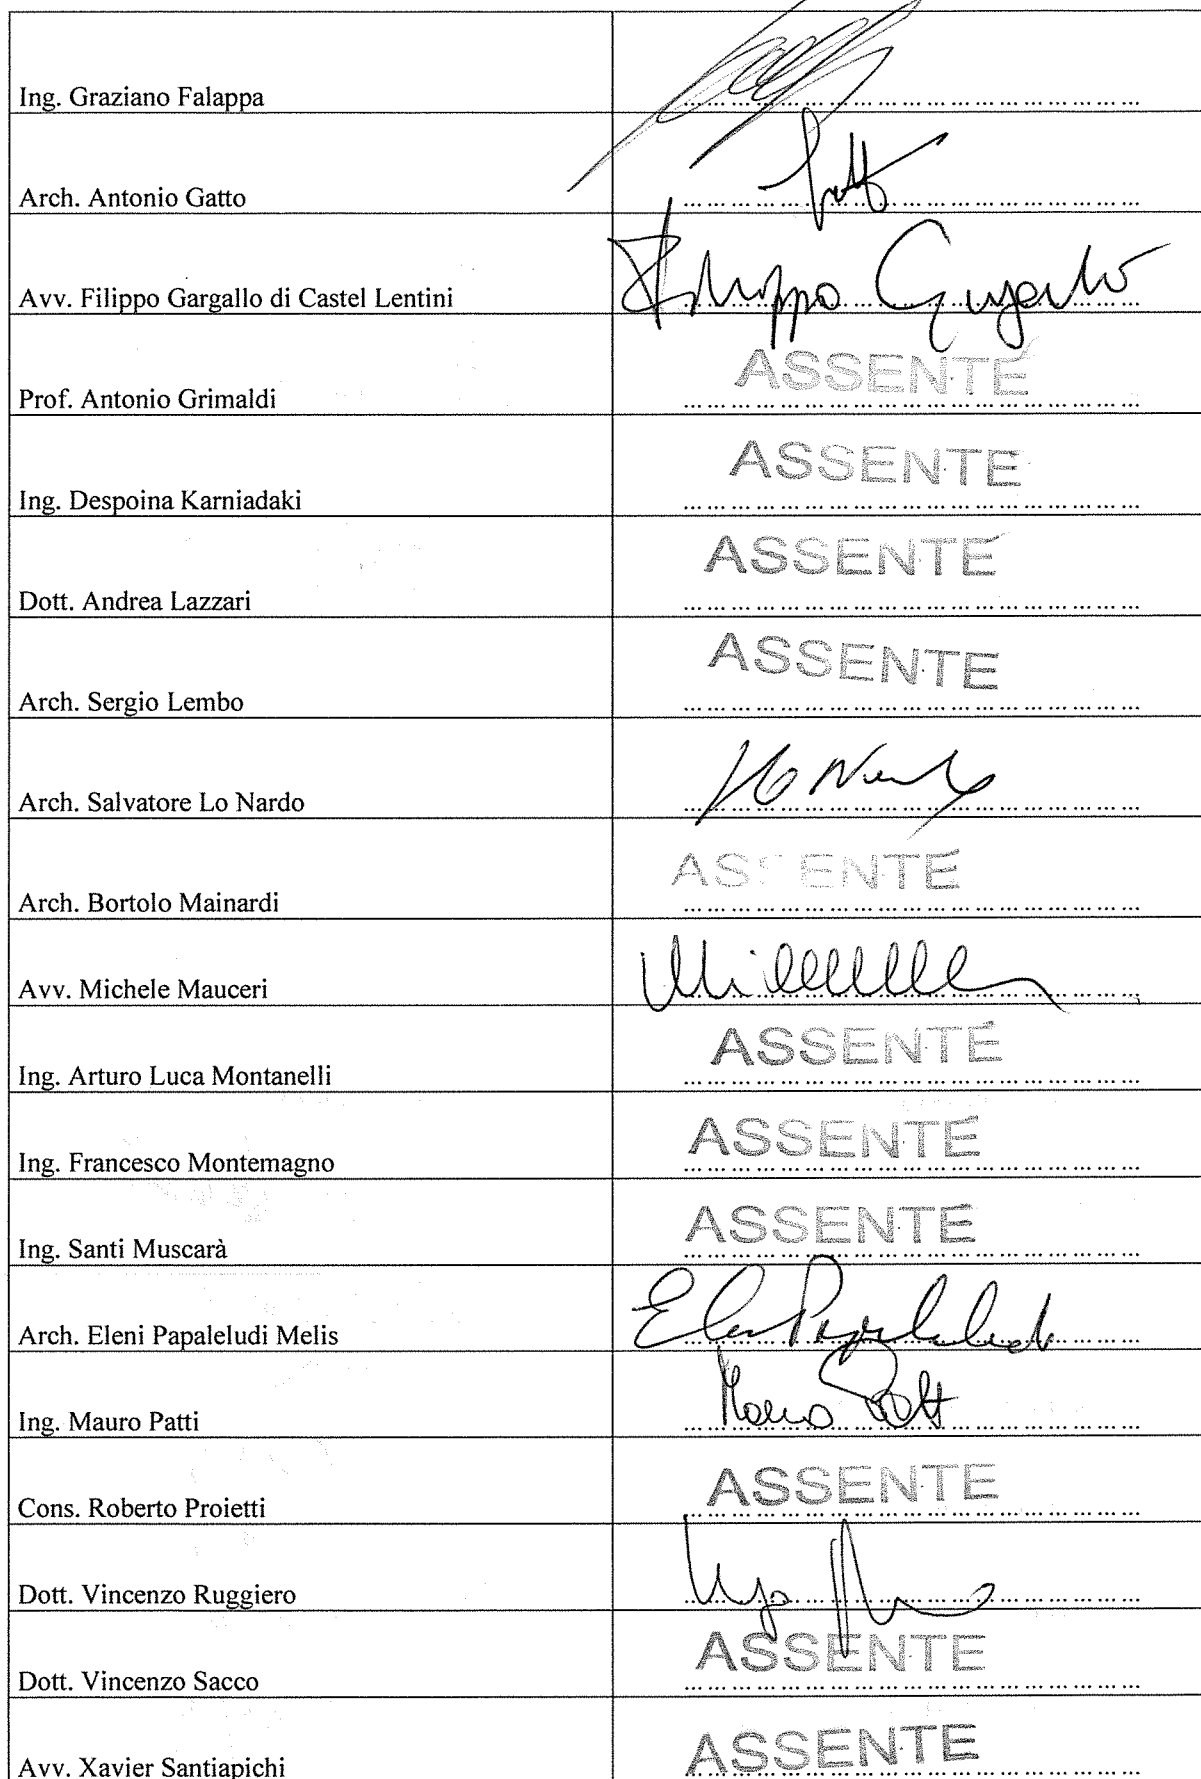 Ing. Graziano Falappa
Arch. Antonio Gatto
Gatto
Avv. Filippo Gargallo di Castel Lentini
Filippo Gargallo
Prof. Antonio Grimaldi
ASSENTE
Ing. Despoina Karniadaki
ASSENTE
Dott. Andrea Lazzari
ASSENTE
Arch. Sergio Lembo
ASSENTE
Arch. Salvatore Lo Nardo
Lo Nardo
Arch. Bortolo Mainardi
ASSENTE
Avv. Michele Mauceri
Ing. Arturo Luca Montanelli
ASSENTE
Ing. Francesco Montemagno
ASSENTE
Ing. Santi Muscarà
ASSENTE
Arch. Eleni Papaleludi Melis
Ing. Mauro Patti
Mauro Patti
Cons. Roberto Proietti
ASSENTE
Dott. Vincenzo Ruggiero
Dott. Vincenzo Sacco
ASSENTE
Avv. Xavier Santiapichi
ASSENTE